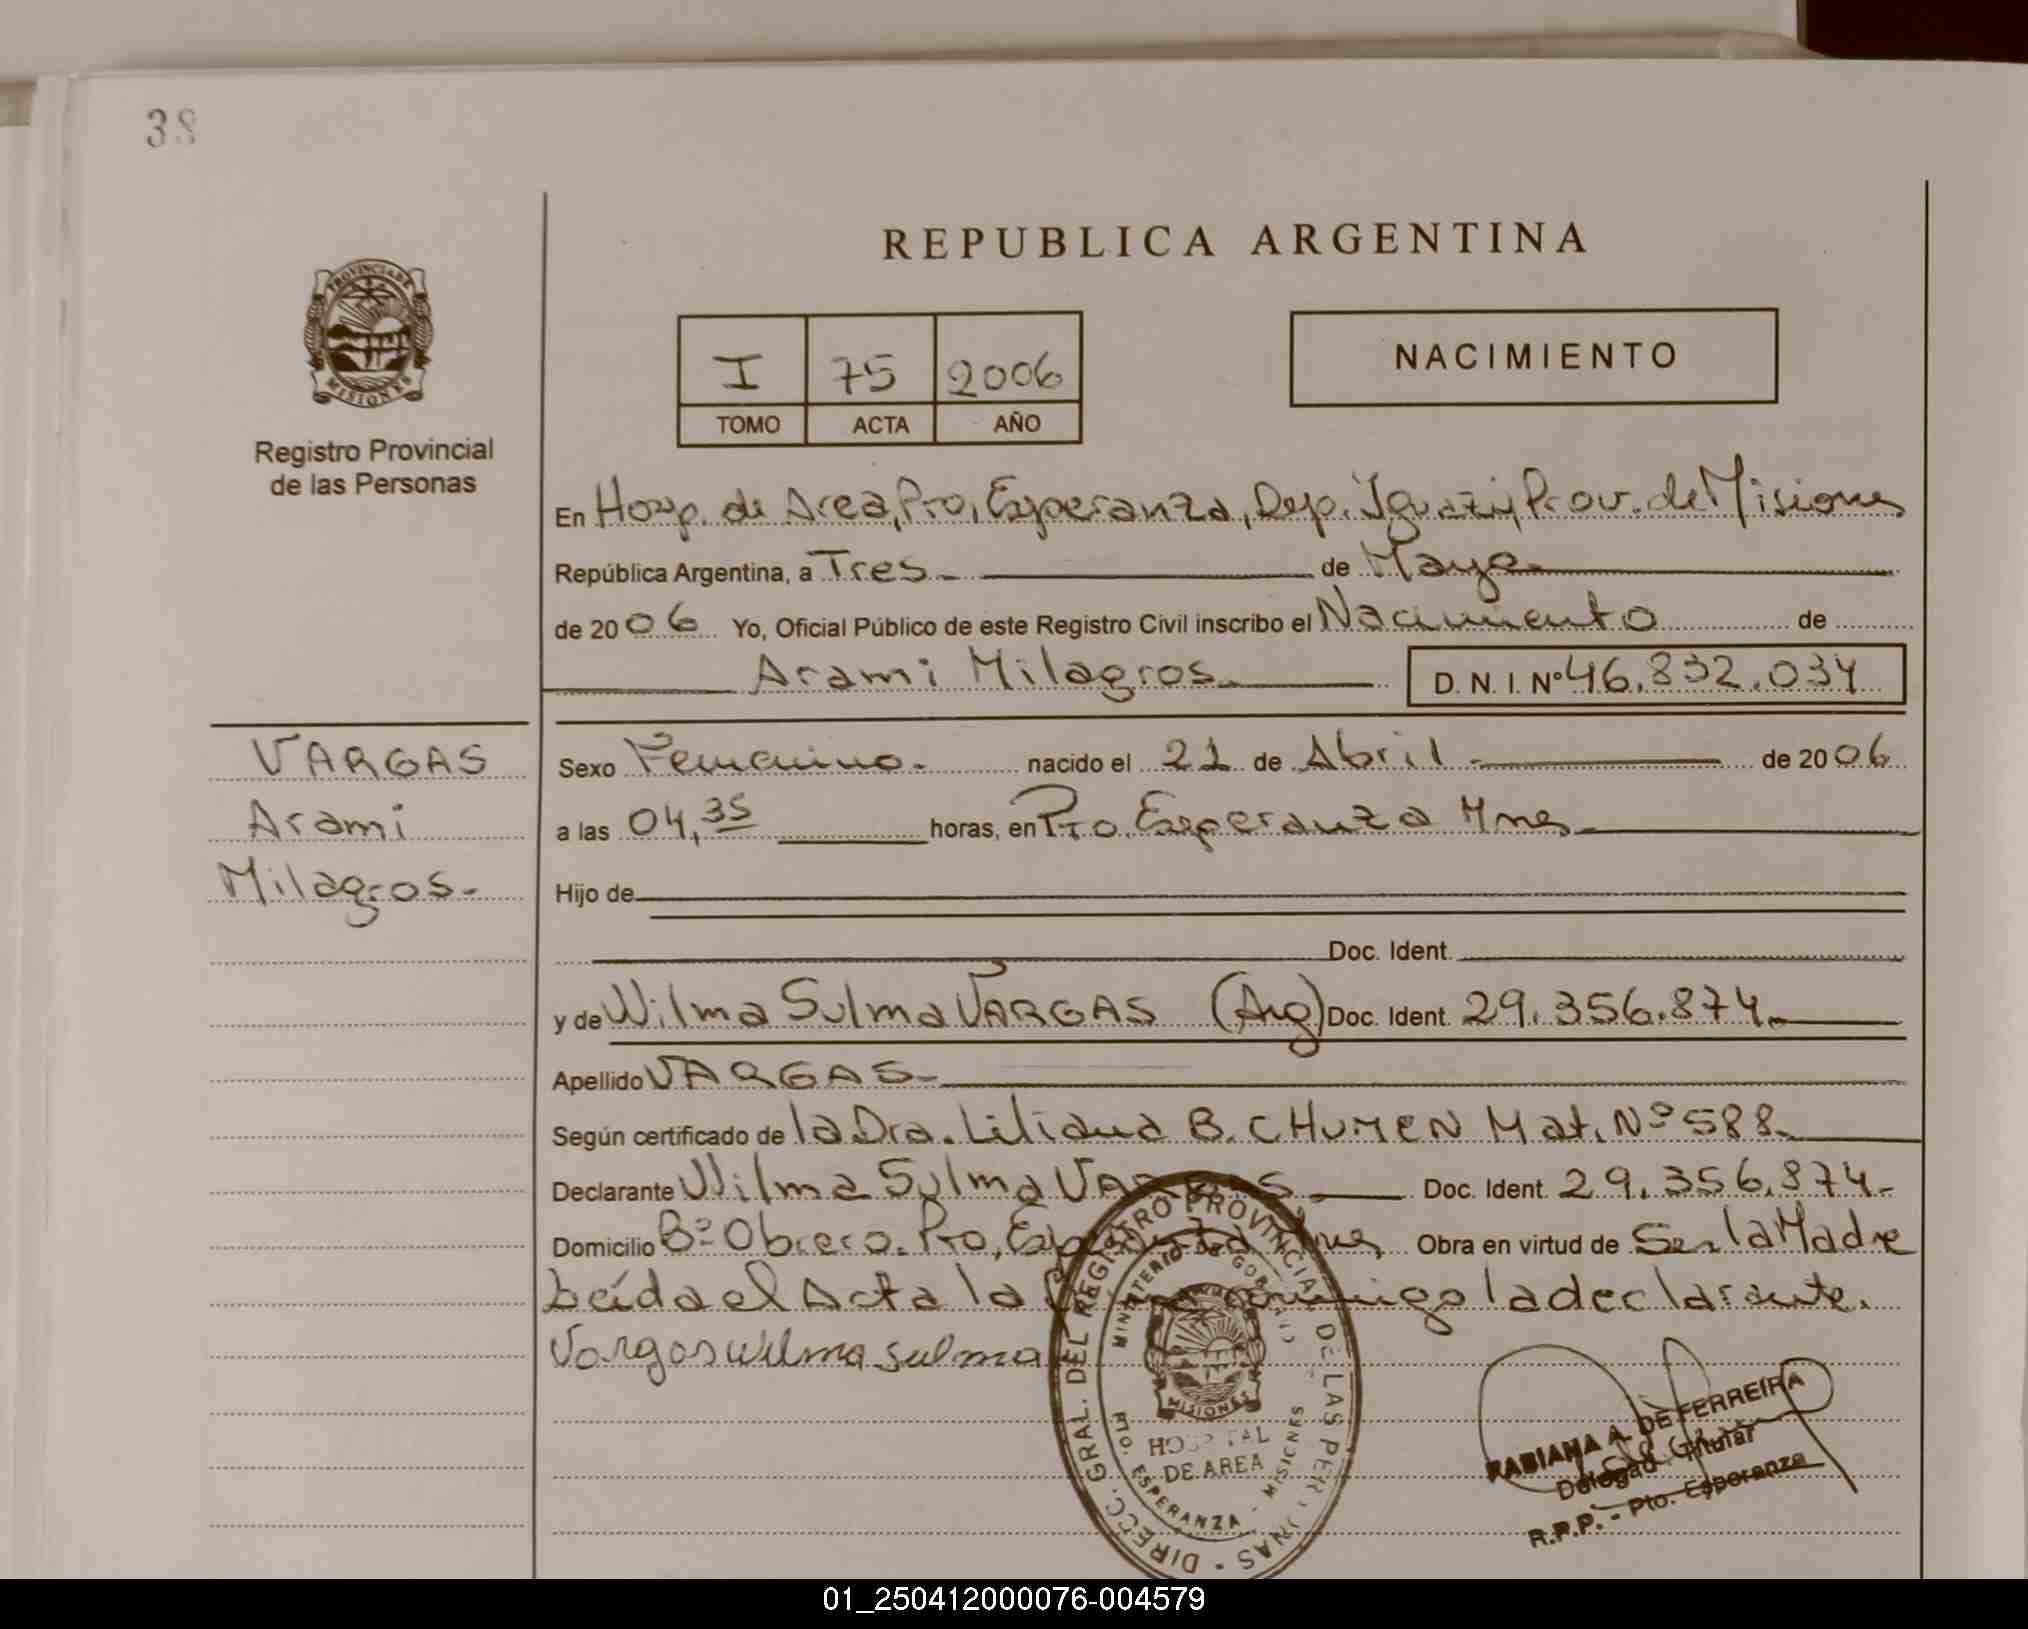 38
REPUBLICA ARGENTINA
PROVINCIA DE
MISIONES
Registro Provincial
de las Personas
I 75 2006
TOMO ACTA AÑO
NACIMIENTO
En Hosp. de Area, Pto, Esperanza, Dep. Iguazú, Prov. de Misiones
República Argentina, a Tres de Mayo
de 2006 Yo, Oficial Público de este Registro Civil inscribo el Nacimiento de
Arami Milagros D. N. I. Nº 46.832.034
VARGAS
Arami
Milagros.-
Sexo Femenino. nacido el 21 de Abril de 2006
a las 04,35 horas, en Pto. Esperanza Mnes
Hijo de
Doc. Ident.
y de Wilma Sulma VARGAS (Arg) Doc. Ident. 29.356.874.
Apellido VARGAS
Según certificado de la Dra. Liliana B. CHUMEN Mat. Nº 588.
Declarante Wilma Sulma VARGAS Doc. Ident. 29.356.874.-
Domicilio Bº Obrero. Pto, Esperanza Mnes, Obra en virtud de Ser la Madre
Leída el Acta la firma conmigo la declarante.
Vargas Wilma sulma
DIRECC. GRAL. DEL REGISTRO PROVINCIAL DE LAS PERSONAS
MINISTERIO DE GOBIERNO
MISIONES
HOSPITAL
DE AREA
PTO. ESPERANZA - MISIONES
FABIANA A. DE FERREIRA
Delegada Titular
R.P.P. - Pto. Esperanza
01_250412000076-004579